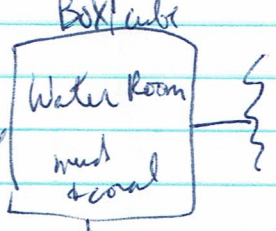 Box/cube
Water Room
mud
+coral